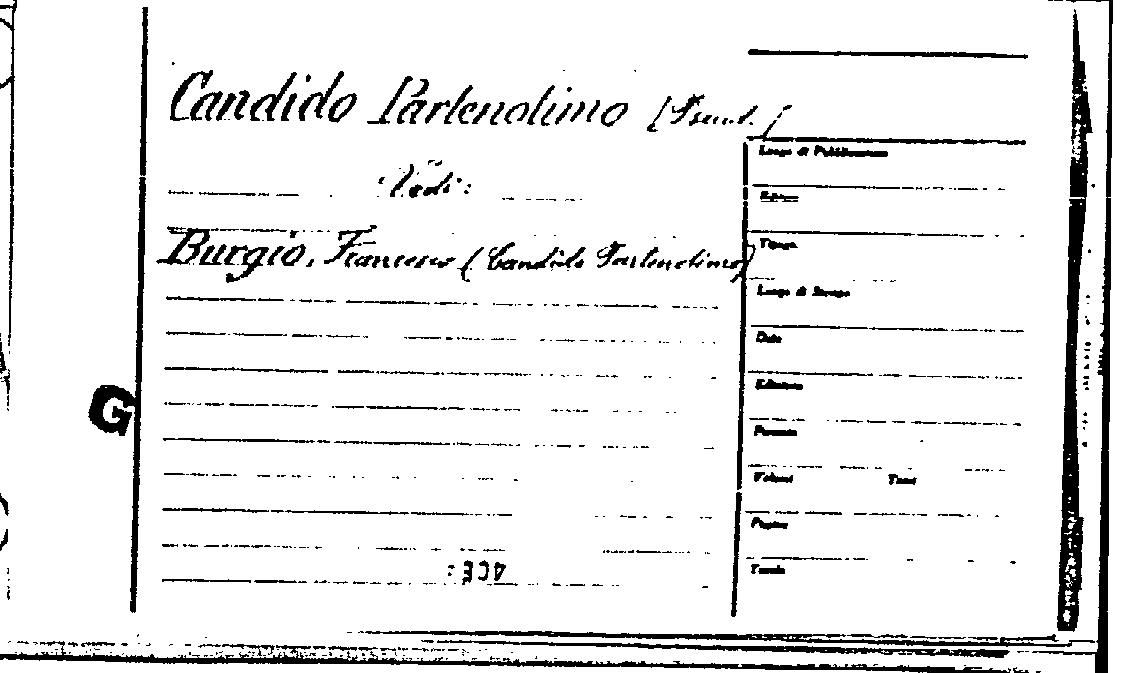 Candido Partenotimo [Pseud.]
Vedi:
Burgio, Francesco (Candido Partenotimo)
Luogo di Pubblicazione
Editore
Tipogr.
Luogo di Stampa
Data
Edizione
Formato
Volumi Tomi
Pagine
Tavole
G